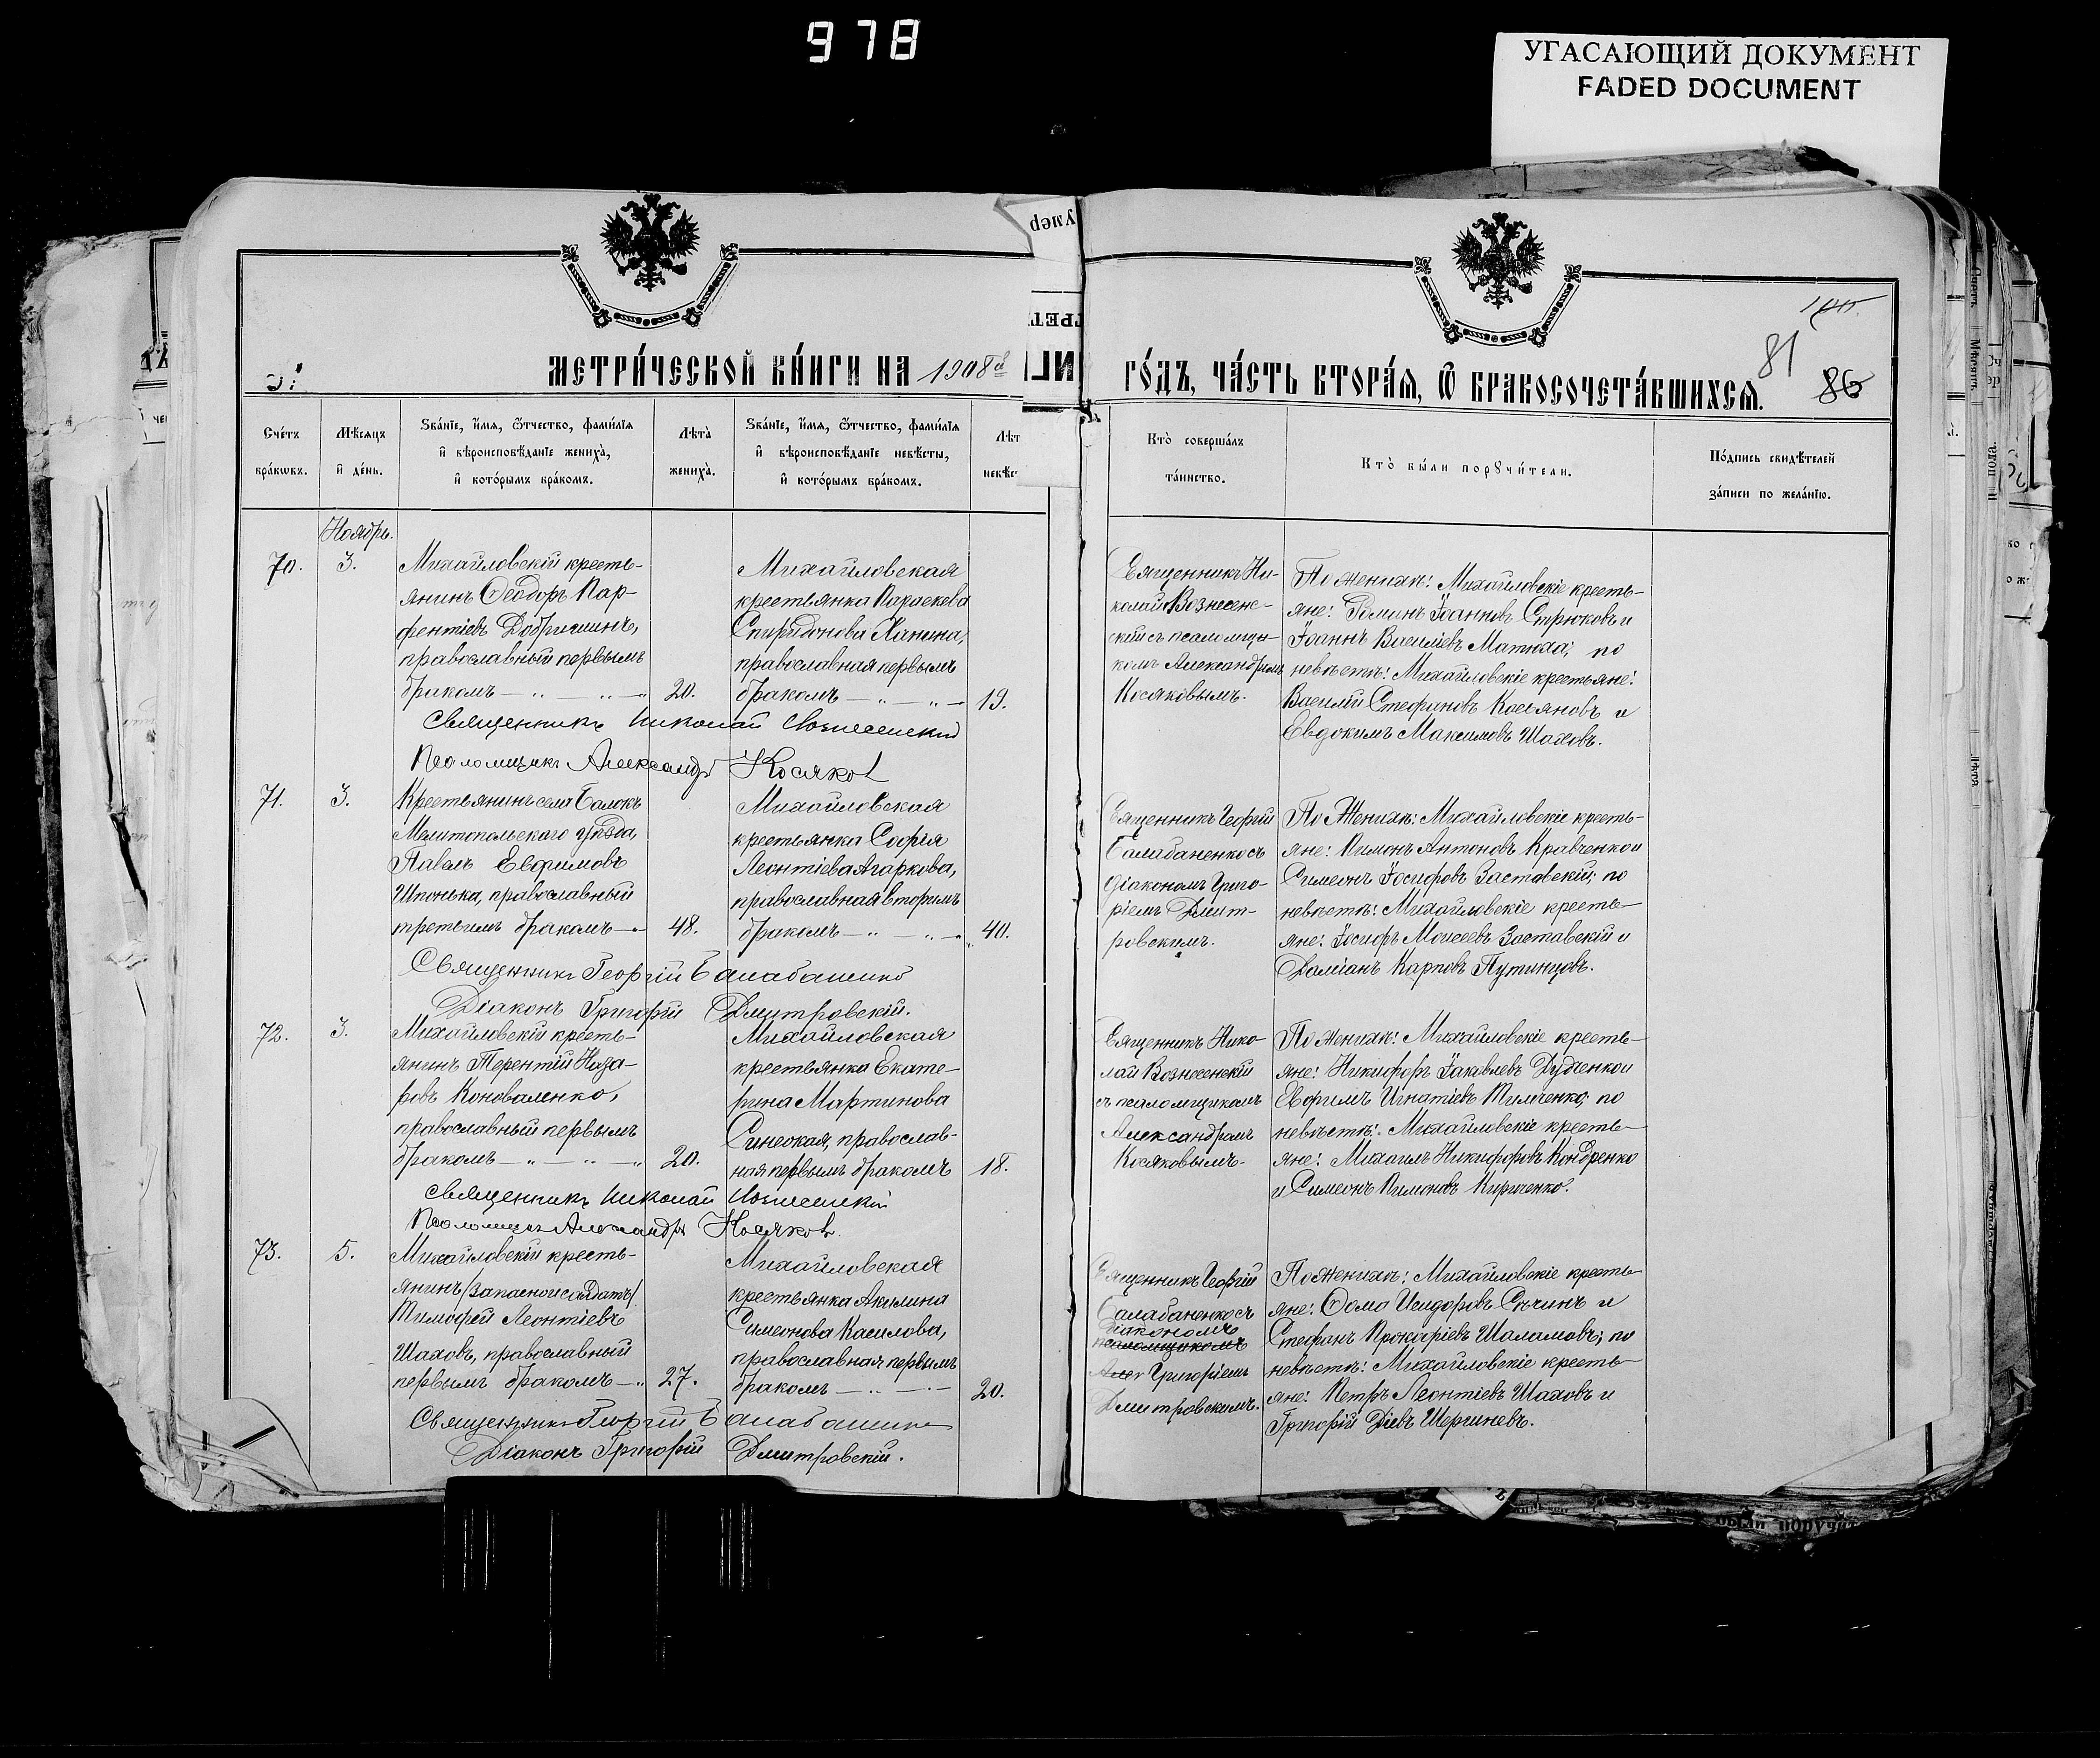 978
УГАСАЮЩИЙ ДОКУМЕНТ
FADED DOCUMENT
МЕТРИ́ЧЕСКОЙ КНИ́ГИ НА 1908й
ГО́ДЪ, ЧА́СТЬ ВТОРА́Я, Ѿ БРАКОСОЧЕТА́ВШИХСЯ.
81
86
Сче́тъ бра́кѡвъ.
Мѣ́сяцъ и҆ де́нь.
Зва́нїе, и҆́мя, ѻ҆́тчество, фами́лїя
и҆ вѣроисповѣ́данїе жениха̀,
и҆ кото́рымъ бра́комъ.
Лѣта̀ жениха̀.
Зва́нїе, и҆́мя, ѻ҆́тчество, фами́лїя
и҆ вѣроисповѣ́данїе невѣ́сты,
и҆ кото́рымъ бра́комъ.
Лѣт
невѣс
Кто̀ соверша́лъ
та́инство.
Кто̀ бы́ли порꙋчи́тели.
По́дпись свидѣ́телей
за́писи по жела́нїю.
Ноябрь.
70.
3.
Михайловскій кресть-
янинъ Ѳеодоръ Пар-
фентіевъ
православный первымъ
бракомъ — „ — „ — „
20.
Михайловская
крестьянка Параскева
Спиридонова Ханина,
православная первымъ
бракомъ — „ — „ —
19.
Священникъ Ни-
колай Вознесен-
скій съ псаломщи-
комъ Александромъ
Косяковымъ.
По женихѣ: Михайловскіе кресть-
яне: Іоанновъ Стрюковъ и
Іоаннъ Василіевъ Матюха; по
невѣстѣ: Михайловскіе крестьяне:
Василій Стефановъ Касьяновъ и
Евдокимъ Максимовъ Шаховъ.
Священникъ Николай Вознесенскій
Псаломщикъ Александръ Косяковъ
71.
3.
Крестьянинъ села Балокъ
Мелитопольскаго уѣзда,
Павелъ Евфимовъ
Шпонька, православный
третьимъ бракомъ — „
48.
Михайловская
крестьянка Софія
Леонтіева Агаркова,
православная вторымъ
бракомъ — „ — „ — „
40.
Священникъ Георгій
Балабаненко съ
діакономъ Григо-
ріемъ Дмит-
ровскимъ.
По Женихѣ: Михайловскіе кресть-
яне: Пимонъ Антоновъ Кравченко и
Симеонъ Іосифовъ Заставскій; по
невѣстѣ: Михайловскіе кресть-
яне: Іосифъ Моисеевъ Заставскій и
Даміанъ Карповъ Путинцовъ.
Священникъ Георгій Балабаненко
Діаконъ Григорій Дмитровскій.
72.
3.
Михайловскій кресть-
янинъ Терентій Наза-
ровъ Коноваленко,
православный первымъ
бракомъ — „ — „ — „
20.
Михайловская
крестьянка Екате-
рина Мартинова
Синеокая, православ-
ная первымъ бракомъ
18.
Священникъ Нико-
лай Вознесенскій
съ псаломщикомъ
Александромъ
Косяковымъ.
По женихѣ: Михайловскіе кресть-
яне: Никифоръ Іаковлевъ Дудченко и
Евфимъ Игнатіевъ Тимченко; по
невѣстѣ: Михайловскіе кресть-
яне: Михаилъ Никифоровъ Кондренко
и Симеонъ Пимоновъ Кириченко.
Священникъ Николай Вознесенскій
Псаломщикъ Александръ Косяковъ.
73.
5.
Михайловскій кресть-
янинъ /запасной солдатъ/
Тимофей Леонтіевъ
Шаховъ, православный
первымъ бракомъ — „
27.
Михайловская
крестьянка Акилина
Симеонова Касилова,
православная первымъ
бракомъ — „ — „ —
20.
Священникъ Георгій
Балабаненко съ
діакономъ
псаломщикомъ
Григоріемъ
Дмитровскимъ.
По женихѣ: Михайловскіе кресть-
яне: Ѳома Исидоровъ Сѣчинъ и
Стефанъ Прокофіевъ Шаламовъ; по
невѣстѣ: Михайловскіе кресть-
яне: Петръ Леонтіевъ Шаховъ и
Григорій Діевъ Шергиневъ.
Священникъ Георгій Балабаненко
Діаконъ Григорій Дмитровскій.